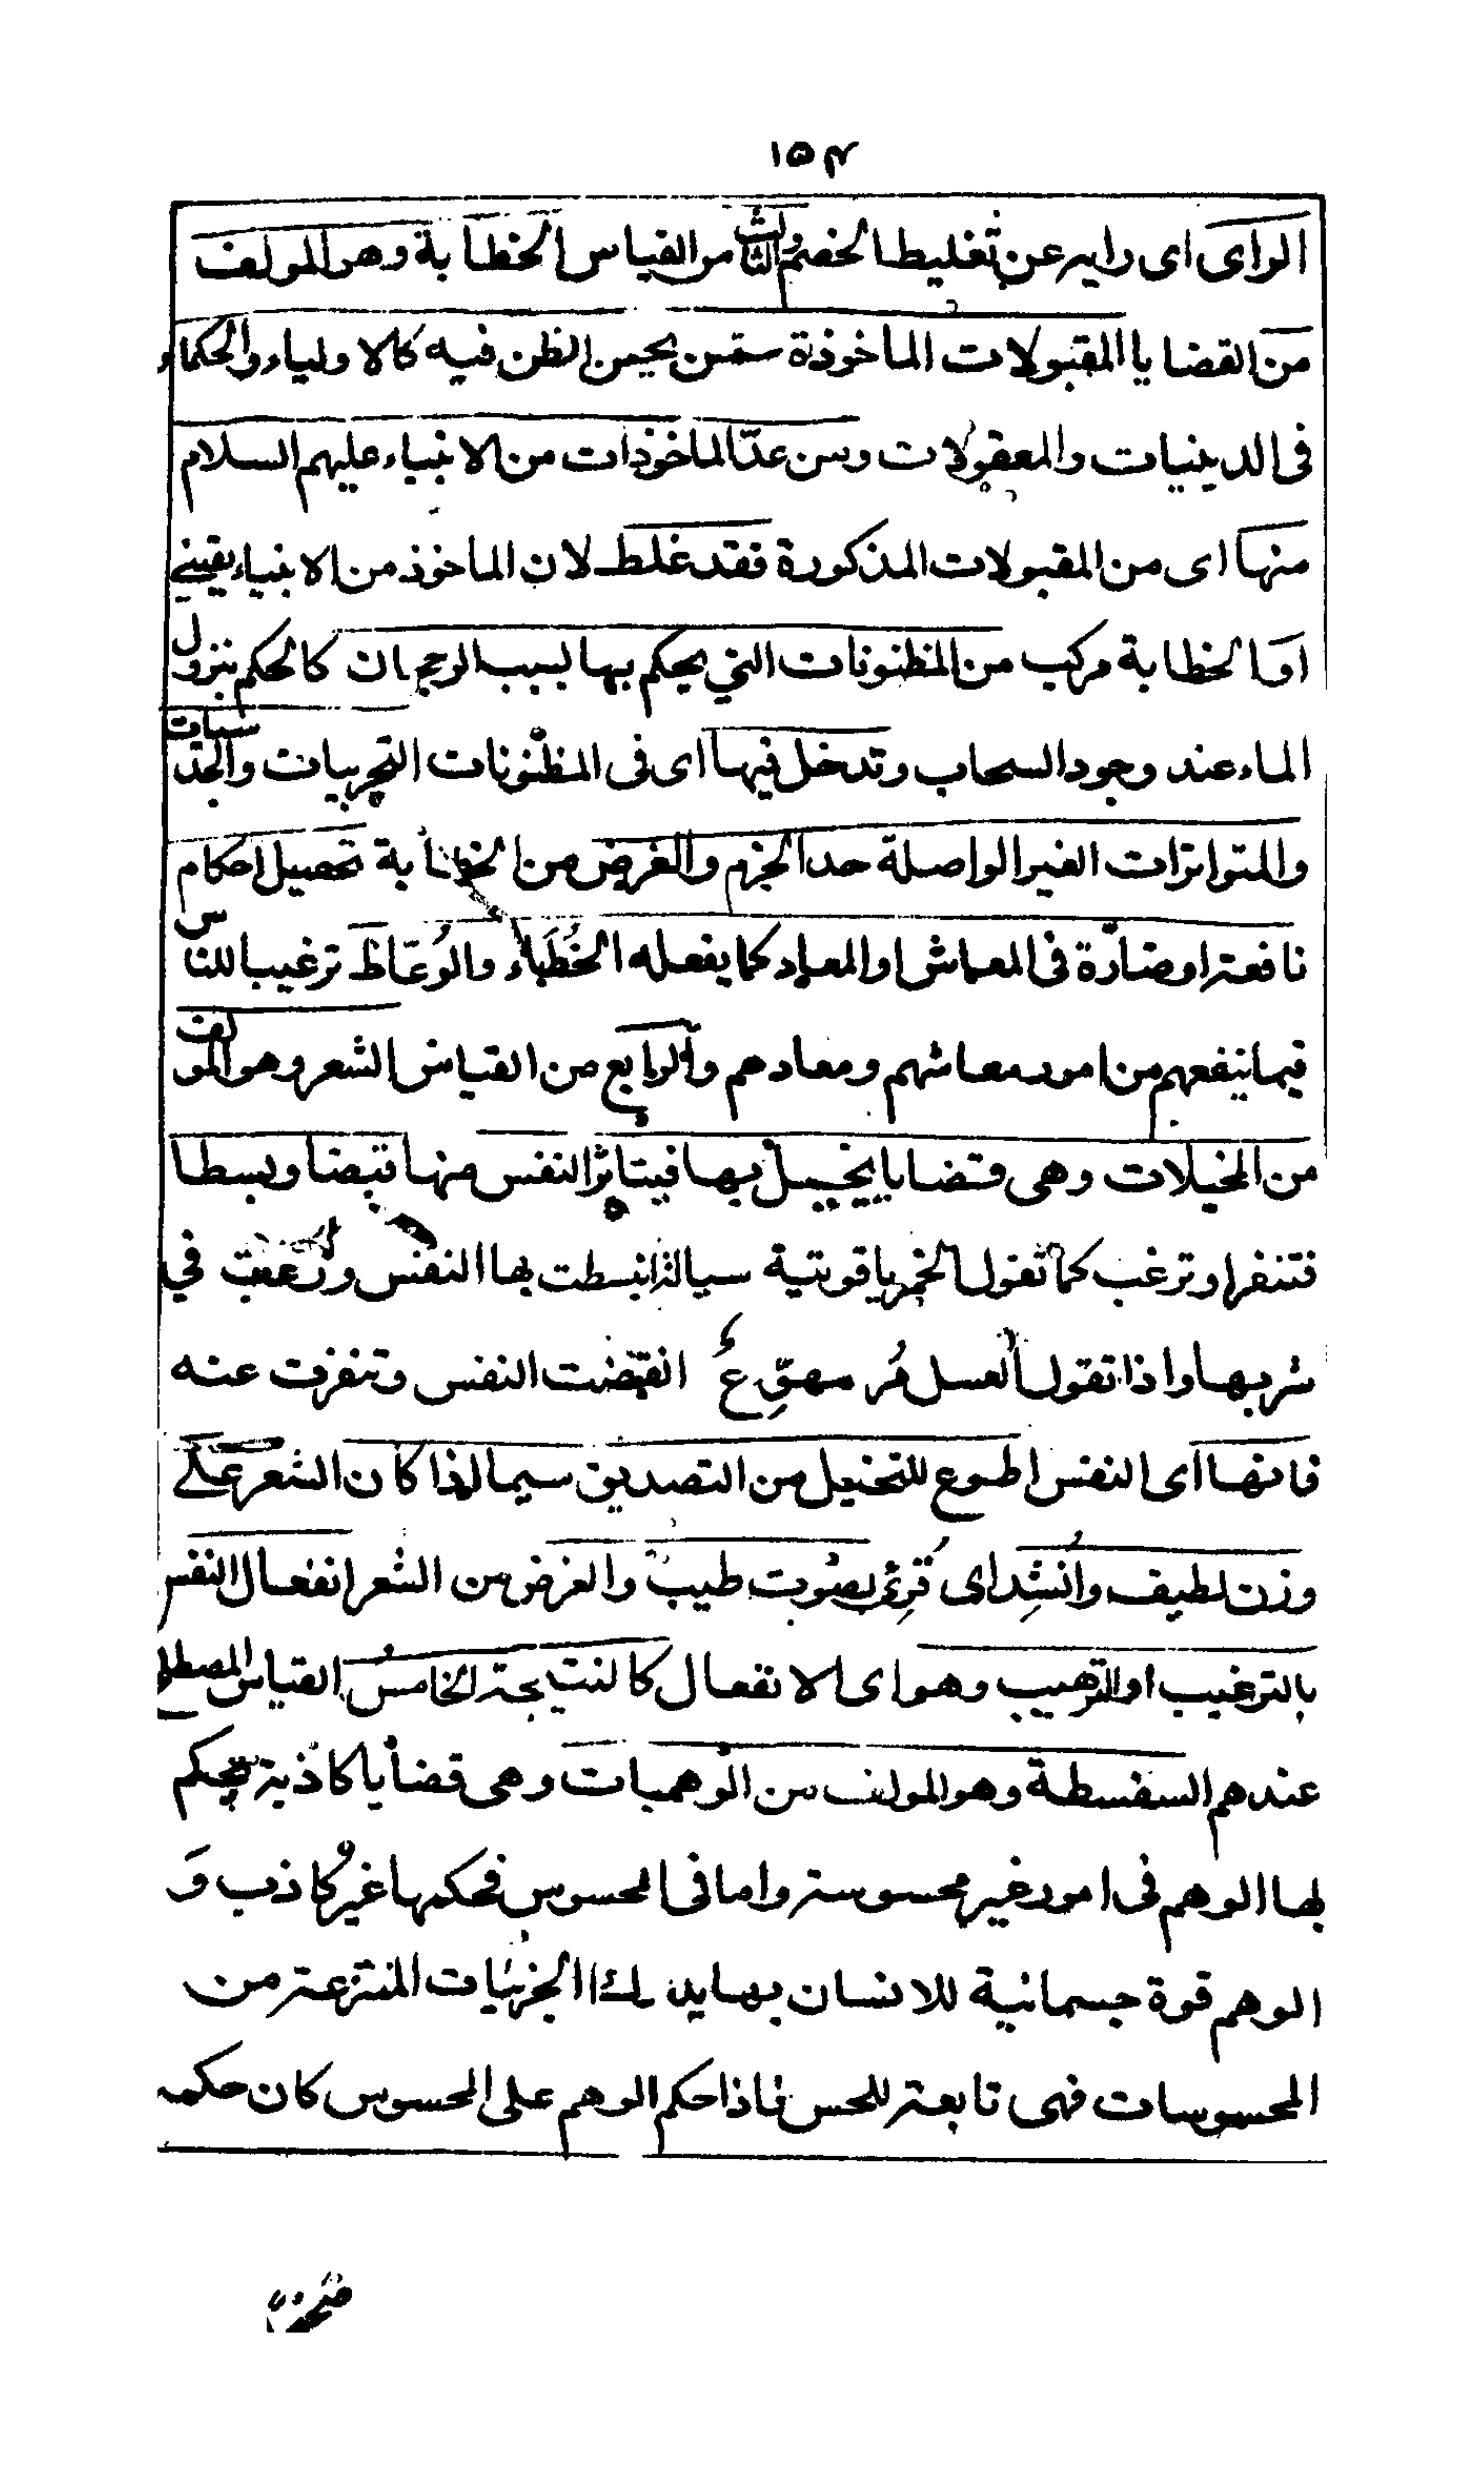 ١٥٤
الراى اى رايه عن تغليط الخصم والثالث من القياس الخطابة وهو المولف
من القضايا المقبولات الماخوذة ممن يحسن الظن فيه كالاولياء والحكماء
فى الدينيات والمعقولات ومن عدّ الماخوذات من الانبياء عليهم السلام
منها اى من المقبولات المذكورة فقد غلط لان الماخوذ من الانبياء يقينے
او الخطابة مركب من المظنونات التي يحكم بها بسبب الرجحان كالحكم بنزول
الماء عند وجود السحاب وتدخل فيها اى فى المظنونات التجربيات والحدسيات
والمتواترات الغير الواصلة حد الجزم والغرض من الخطابة تحصيل احكام
نافعة او ضارّة فى المعاش او المعاد كما يفعله الخُطَباء والوُعّاظ ترغيبا للناس
فيما ينفعهم من امور معاشهم ومعادهم والرابع من القياس الشعر وهو المولف
من المخيلات وهى قضايا يخييل بها فيتاثر النفس منها قبضا وبسطا
فتنفر او ترغب كما تقول الخمر ياقوتية سيالة انبسطت بها النفس ورغبت في
شربها واذا تقول العسل مُر مهوِّع انقبضت النفس وتنفرت عنه
فانها اى النفس اطوع للتخئيل من التصديق سيما اذا كان الشعر علے
وزن لطيف وانُشِد اى قُرِئ بصوت طيب والغرض من الشعر انفعال النفس
بالترغيب او الترهيب وهو اى الانفعال كالنتيجة الخامس القياس المصطلح
عندهم السفسطة وهو المولف من الوهميات وهى قضايا كاذبة يحكم
بها الوهم فى امور غير محسوسة واما فى المحسوس فحكمها غير كاذب وَ
الوهم قوة جسمانية للانسان بها يدرك الجزئيات المنتزعة من
المحسوسات فهى تابعة للحس فاذا حكم الوهم على المحسوس كان حكمه